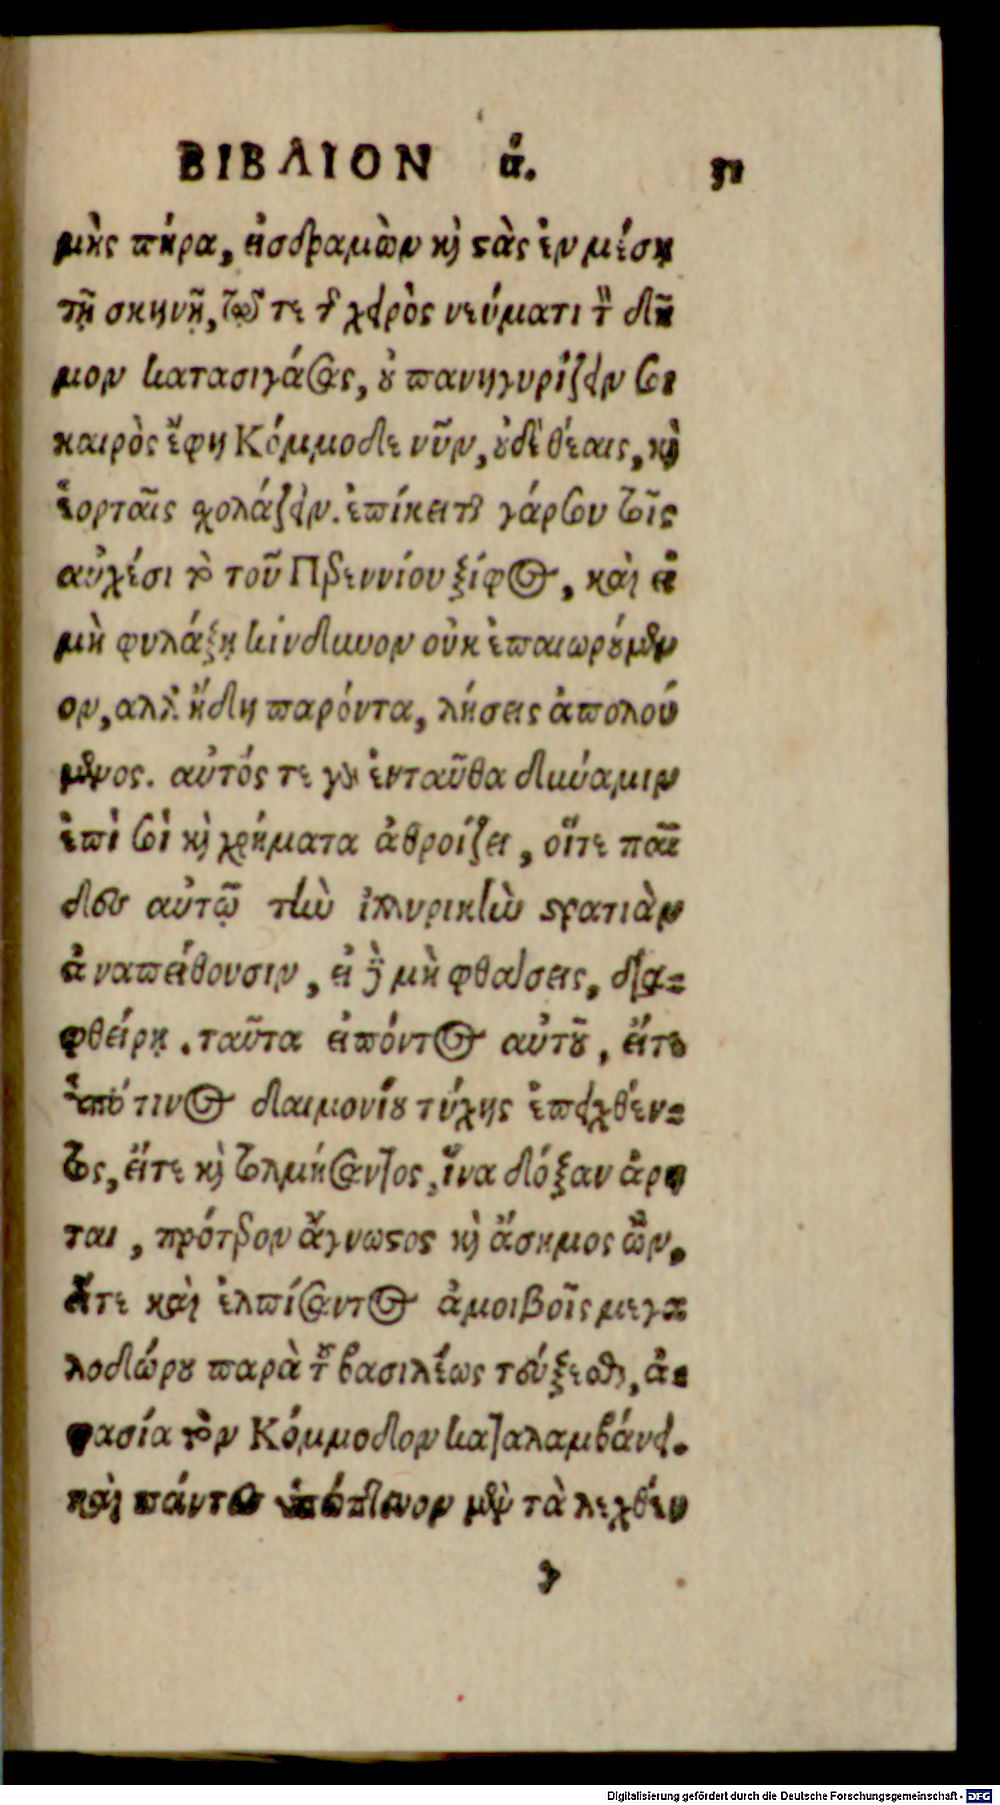 ΒΙΒΛΙΟΝ ά. 31
μὴς πήρα, εἰσδραμὼν καὶ στὰς ἐν μέσῃ
τῇ σκηνῇ, τῷ τε τῆς χειρὸς νεύματι τὸν δῆ
μον κατασιγάσας, οὐ πανηγυρίζειν σοι
καιρὸς ἔφη Κόμμοδε νῦν, οὐδὲ θέαις, καὶ
ἑορταῖς σχολάζειν. ἐπίκειται γάρ σου τοῖς
αὐχέσι τὸ τοῦ Περεννίου ξίφος, καὶ εἰ
μὴ φυλάξῃ κίνδυνον οὐκ ἐπαιωρούμεν
ον, αλλ' ἤδη παρόντα, λήσεις ἀπολού
μενος. αὐτός τε γὰρ ἐνταῦθα δύναμιν
ἐπὶ σὲ καὶ χρήματα ἀθροίζει, οἵτε παῖ
δες αὐτῷ τὴν ἰλλυρικὴν στρατιὰν
ἀναπείθουσιν, εἰ δὲ μὴ φθάσεις, δια-
φθείρῃ. ταῦτα εἰπόντος αὐτοῦ, εἴτε
ὑπό τινος δαιμονίου τύχης ἐπειχθέν-
τος, εἴτε καὶ τολμήσαντος, ἵνα δόξαν ἄρη
ται, πρότερον ἄγνωστος καὶ ἄσημος ὤν.
εἴτε καὶ ἐλπίσαντος ἀμοιβοῖς μεγα
λοδώρου παρὰ τοῦ βασιλέως τεύξεσθαι, ἀ-
φασία τὸν Κόμμοδον καταλαμβάνει.
καὶ πάντες ὑπώπτευον μὲν τὰ λεχθέν